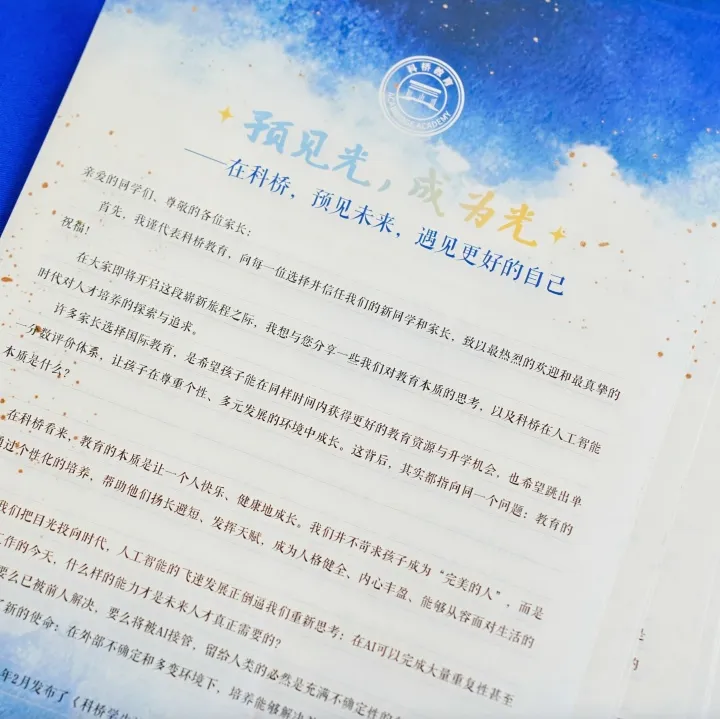 科桥教育
ACADEMY
预见光，成为光
——在科桥，预见未来，遇见更好的自己
亲爱的同学们、尊敬的各位家长：
首先，我谨代表科桥教育，向每一位选择并信任我们的新同学和家长，致以最热烈的欢迎和最真挚的
祝福！
在大家即将开启这段崭新旅程之际，我想与您分享一些我们对教育本质的思考，以及科桥在人工智能
时代对人才培养的探索与追求。
许多家长选择国际教育，是希望孩子能在同样时间内获得更好的教育资源与升学机会，也希望跳出单
一分数评价体系，让孩子在尊重个性、多元发展的环境中成长。这背后，其实都指向同一个问题：教育的
本质是什么？
在科桥看来，教育的本质是让一个人快乐、健康地成长。我们并不苛求孩子成为“完美的人”，而是
通过个性化的培养，帮助他们扬长避短、发挥天赋，成为人格健全、内心丰盈、能够从容面对生活的
我们把目光投向时代，人工智能的飞速发展正倒逼我们重新思考：在AI可以完成大量重复性甚至
工作的今天，什么样的能力才是未来人才真正需要的？
要么已被前人解决，要么将被AI接管，留给人类的必然是充满不确定性的
了新的使命：在外部不确定和多变环境下，培养能够解决
年2月发布了《科桥学生